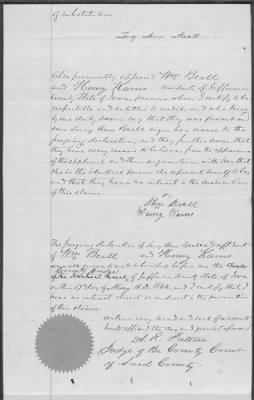 of substitution
Lucy Ann Beall
Also personally appeared Wm Beall
and Henry Harns residents of Jefferson
County State of Iowa, persons whom I certify to be
respectable and entitled to credit and who being
by me duly sworn say that they were present and
saw Lucy Ann Beall sign her name to the
foregoing declaration, and they further swear that
they have every reason to believe from the appearance
of the applicant and their acquaintance with her that
she is the identical person she represents herself to be,
and that they have no interest in the prosecution
of this claim.
Wm Beall
Henry Harns
The foregoing declaration of Lucy Ann Beall and affidavit
of Wm Beall and Henry Harns
were all sworn to and subscribed before me
County Judge
of Jefferson County State of Iowa
on this 13 day of May A.D. 1864, and I certify that I
have no interest direct or indirect in the prosecution
of this claim.
Witness my hand and seal of
office the day and year
Judge of the County Court
of said County.